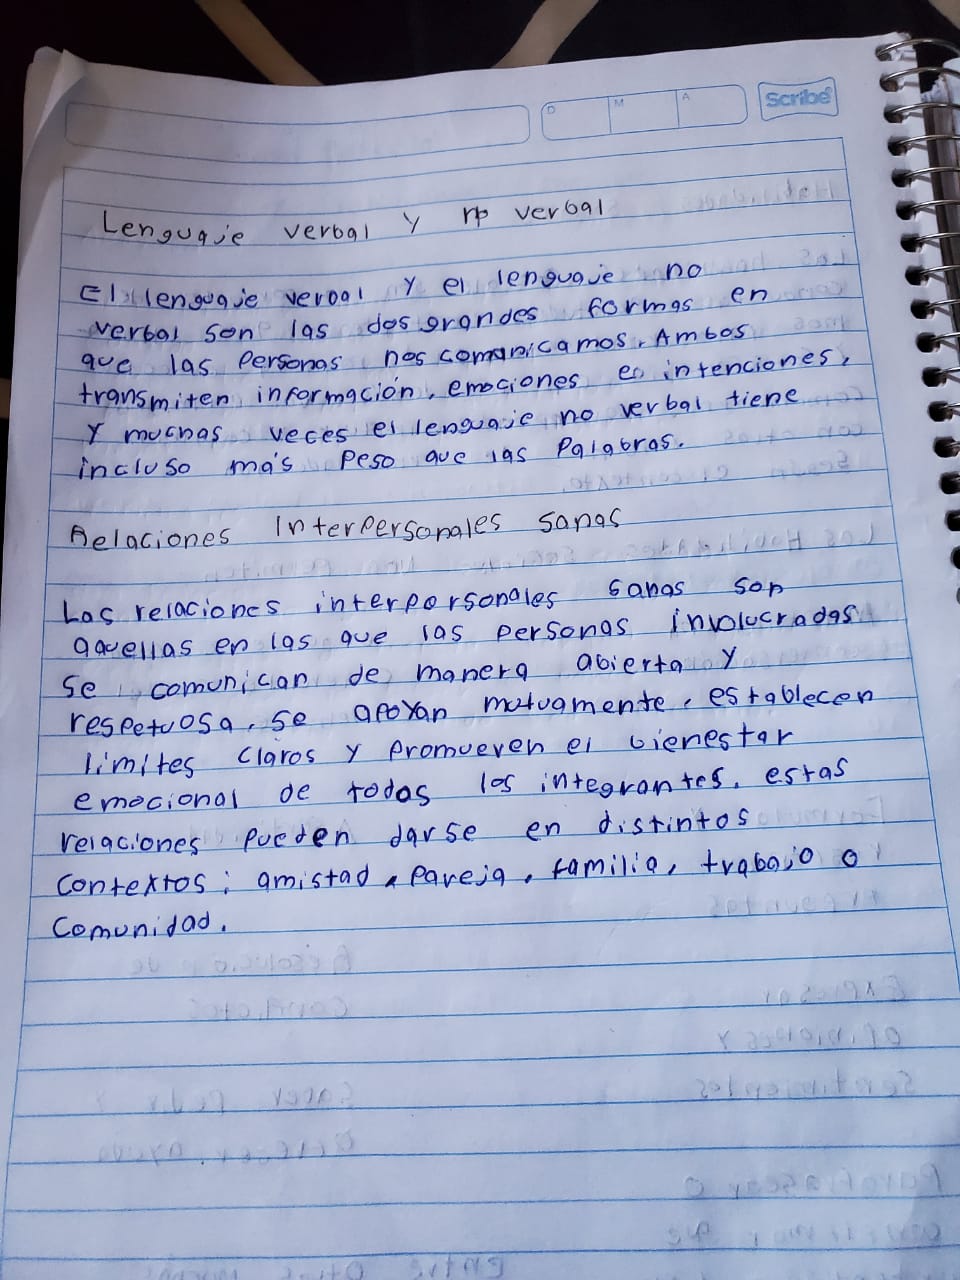 D M A Scribe
Lenguaje verbal y no verbal
El lenguaje verbal y el lenguaje no
verbal son las dos grandes formas en
que las personas nos comunicamos. Ambos
transmiten información, emociones e intenciones,
y muchas veces el lenguaje no verbal tiene
incluso más peso que las palabras.
Relaciones Interpersonales sanas
Las relaciones interpersonales sanas son
aquellas en las que las personas involucradas
se comunican de manera abierta y
respetuosa, se apoyan mutuamente, establecen
límites claros y promueven el bienestar
emocional de todos los integrantes. estas
relaciones pueden darse en distintos
contextos: amistad, pareja, familia, trabajo o
comunidad.